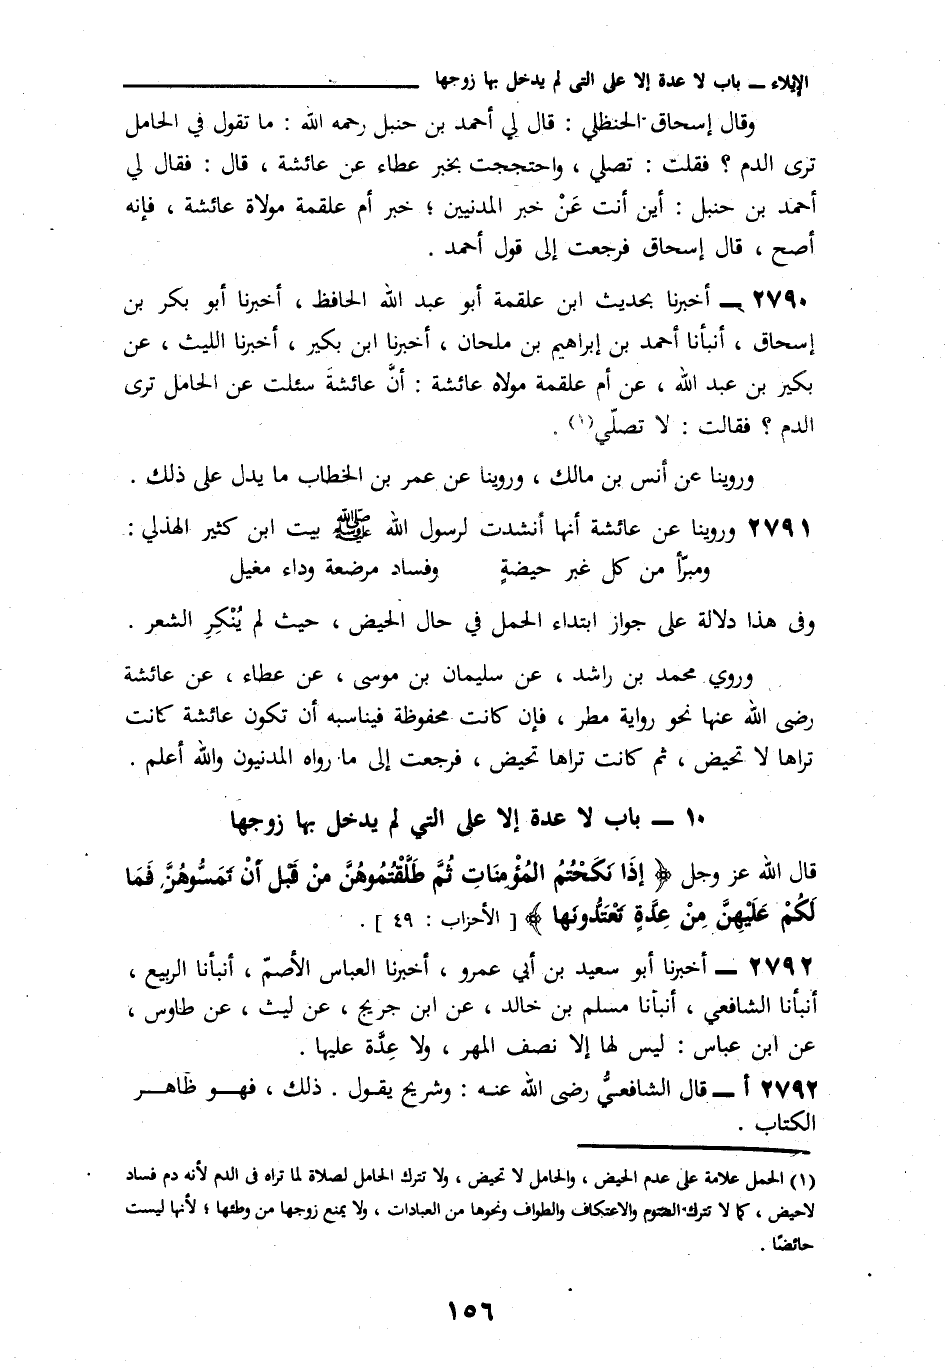 الإيلاء ــ باب لا عدة إلا على التي لم يدخل بها زوجها
وقال إسحاق الحنظلي : قال لي أحمد بن حنبل رحمه الله : ما تقول في الحامل
ترى الدم ؟ فقلت : تصلي ، واحتججت بخبر عطاء عن عائشة ، قال : فقال لي
أحمد بن حنبل : أين أنت عَنْ خبر المدنيين ؛ خبر أم علقمة مولاة عائشة ، فإنه
أصح ، قال إسحاق فرجعت إلى قول أحمد .
٢٧٩٠ ــ أخبرنا بحديث ابن علقمة أبو عبد الله الحافظ ، أخبرنا أبو بكر بن
إسحاق ، أنبأنا أحمد بن إبراهيم بن ملحان ، أخبرنا ابن بكير ، أخبرنا الليث ، عن
بكير بن عبد الله ، عن أم علقمة مولاه عائشة : أنَّ عائشةَ سئلت عن الحامل ترى
الدم ؟ فقالت : لا تصلّي(١) .
وروينا عن أنس بن مالك ، وروينا عن عمر بن الخطاب ما يدل على ذلك .
٢٧٩١ وروينا عن عائشة أنها أنشدت لرسول الله ﷺ بيت ابن كثير الهذلي :
ومبرّأ من كل غبر حيضةٍ وفساد مرضعة وداء مغيل
وفى هذا دلالة على جواز ابتداء الحمل في حال الحيض ، حيث لم يُنْكِرِ الشعر .
وروي محمد بن راشد ، عن سليمان بن موسى ، عن عطاء ، عن عائشة
رضى الله عنها نحو رواية مطر ، فإن كانت محفوظة فيناسبه أن تكون عائشة كانت
تراها لا تحيض ، ثم كانت تراها تحيض ، فرجعت إلى ما رواه المدنيون والله أعلم .
١٠ ــ باب لا عدة إلا على التي لم يدخل بها زوجها
قال الله عز وجل ﴿ إذَا نَكَحْتُمُ المُؤْمِنَاتِ ثُمَّ طَلَّقْتُمُوهُنَّ منْ قَبْلِ أنْ تَمَسُّوهُنَّ فَمَا
لَكُمْ عَلَيْهِنَّ مِنْ عِدَّةٍ تَعْتَدُّونَها ﴾ [ الأحزاب : ٤٩ ] .
٢٧٩٢ ــ أخبرنا أبو سعيد بن أبي عمرو ، أخبرنا العباس الأصمّ ، أنبأنا الربيع ،
أنبأنا الشافعي ، أنبأنا مسلم بن خالد ، عن ابن جريج ، عن ليث ، عن طاوس ،
عن ابن عباس : ليس لها إلا نصف المهر ، ولا عِدَّة عليها .
٢٧٩٢ أ ــ قال الشافعيُّ رضى الله عنه : وشريح يقول . ذلك ، فهو ظاهر
الكتاب .
(١) الحمل علامة على عدم الحيض ، والحامل لا تحيض ، ولا تترك الحامل لصلاة لما تراه فى الدم لأنه دم فساد
لاحيض ، كما لا تترك الصوم والاعتكاف والطواف ونحوها من العبادات ، ولا يمنع زوجها من وطئها ؛ لأنها ليست
حائضًا .
١٥٦